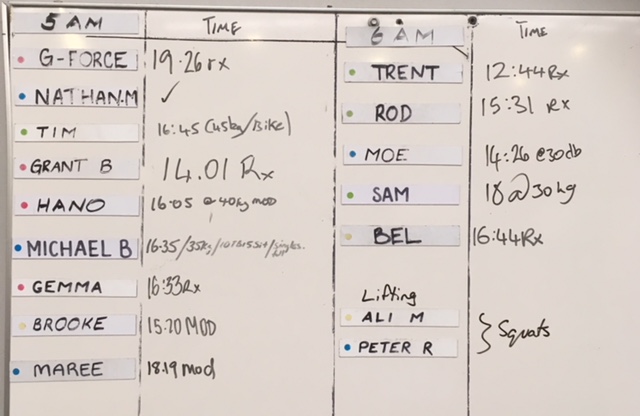 5 AM TIME
G-FORCE 19.26 rx
NATHAN.M ✓
TIM 16:45 (45kg/Bike)
GRANT B 14.01 Rx
HANO 16.05 @ 40kg mod
MICHAEL B 16:35/35kg/
GEMMA 16:33 Rx
BROOKE 15.20 MOD
MAREE 18.19 mod
6 AM TIME
TRENT 12:44 Rx
ROD 15:31 Rx
MOE 14:26 @30db
SAM 18 @ 30kg
BEL 16:44 Rx
Lifting
ALI M
PETER R } Squats